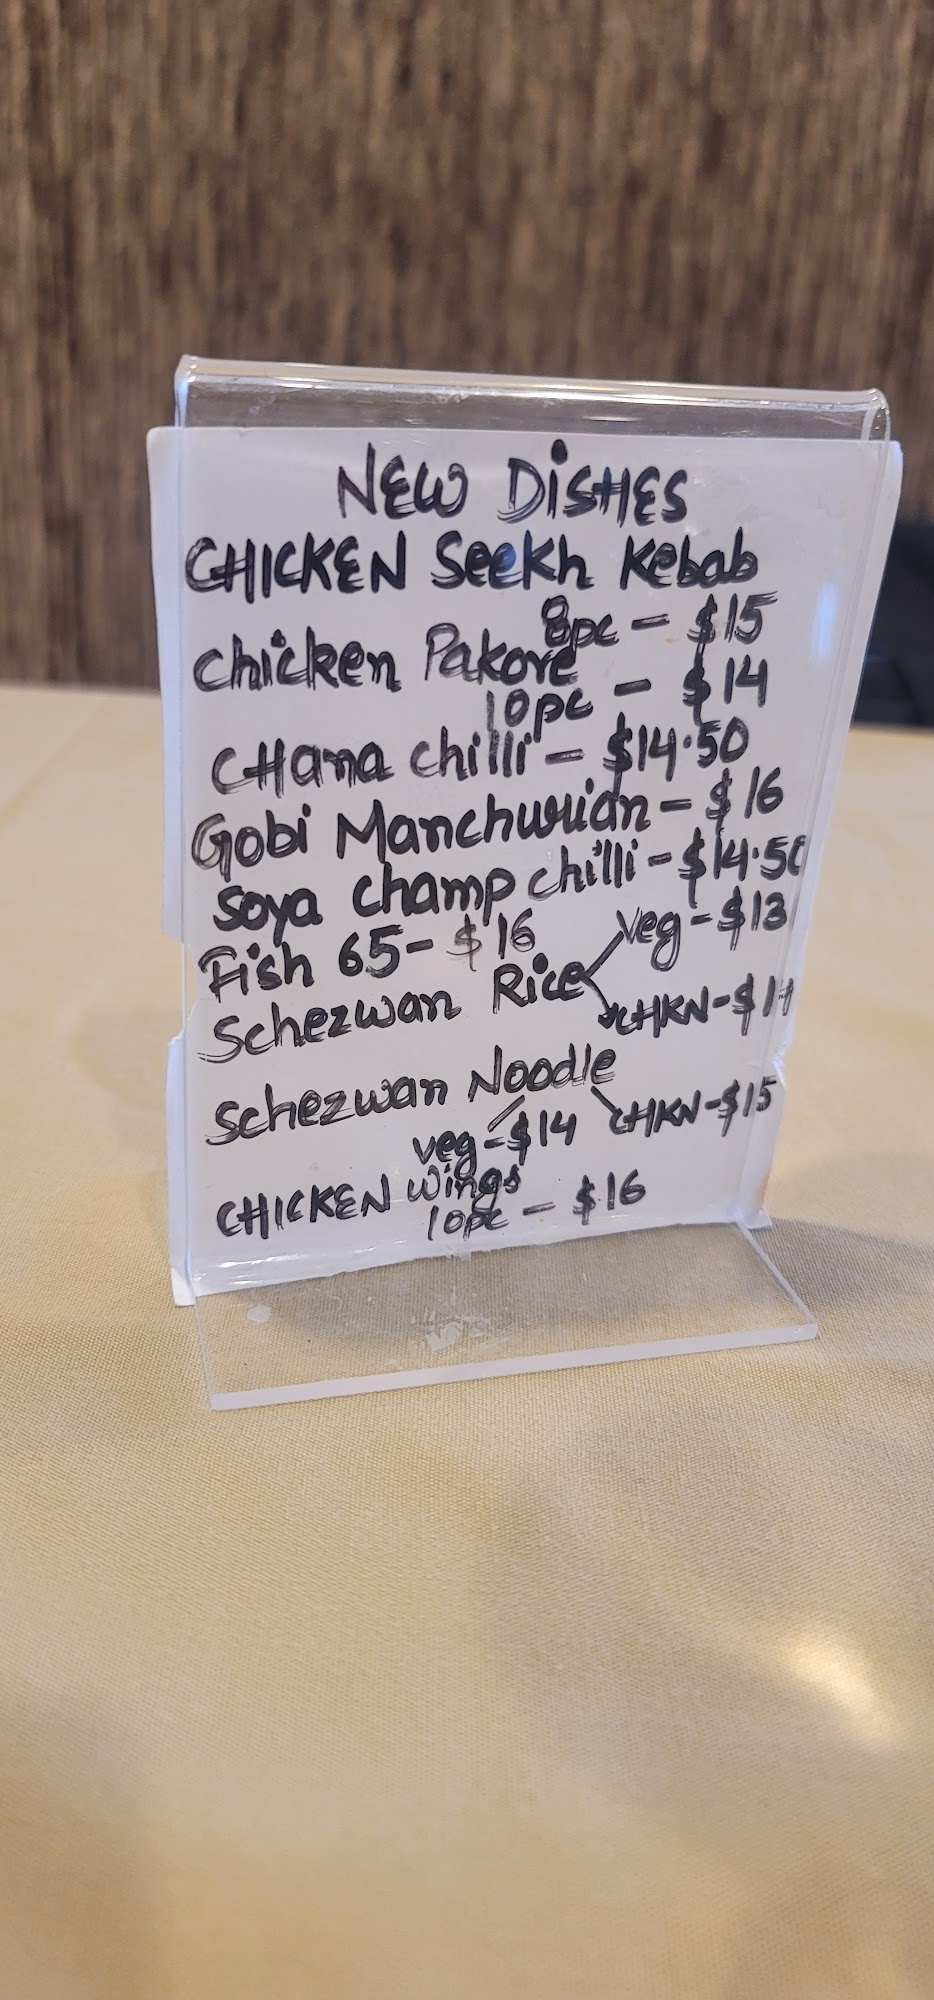 NEW DISHES
CHICKEN Seekh Kebab
8pc - $15
Chicken Pakore
10pc - $14
CHana chilli - $14.50
Gobi Manchurian - $16
Soya Champ chilli - $14.50
Fish 65 - $16
Schezwan Rice veg - $13
CHKN - $14
Schezwan Noodle
veg - $14 CHKN - $15
CHICKEN Wings
10pc - $16